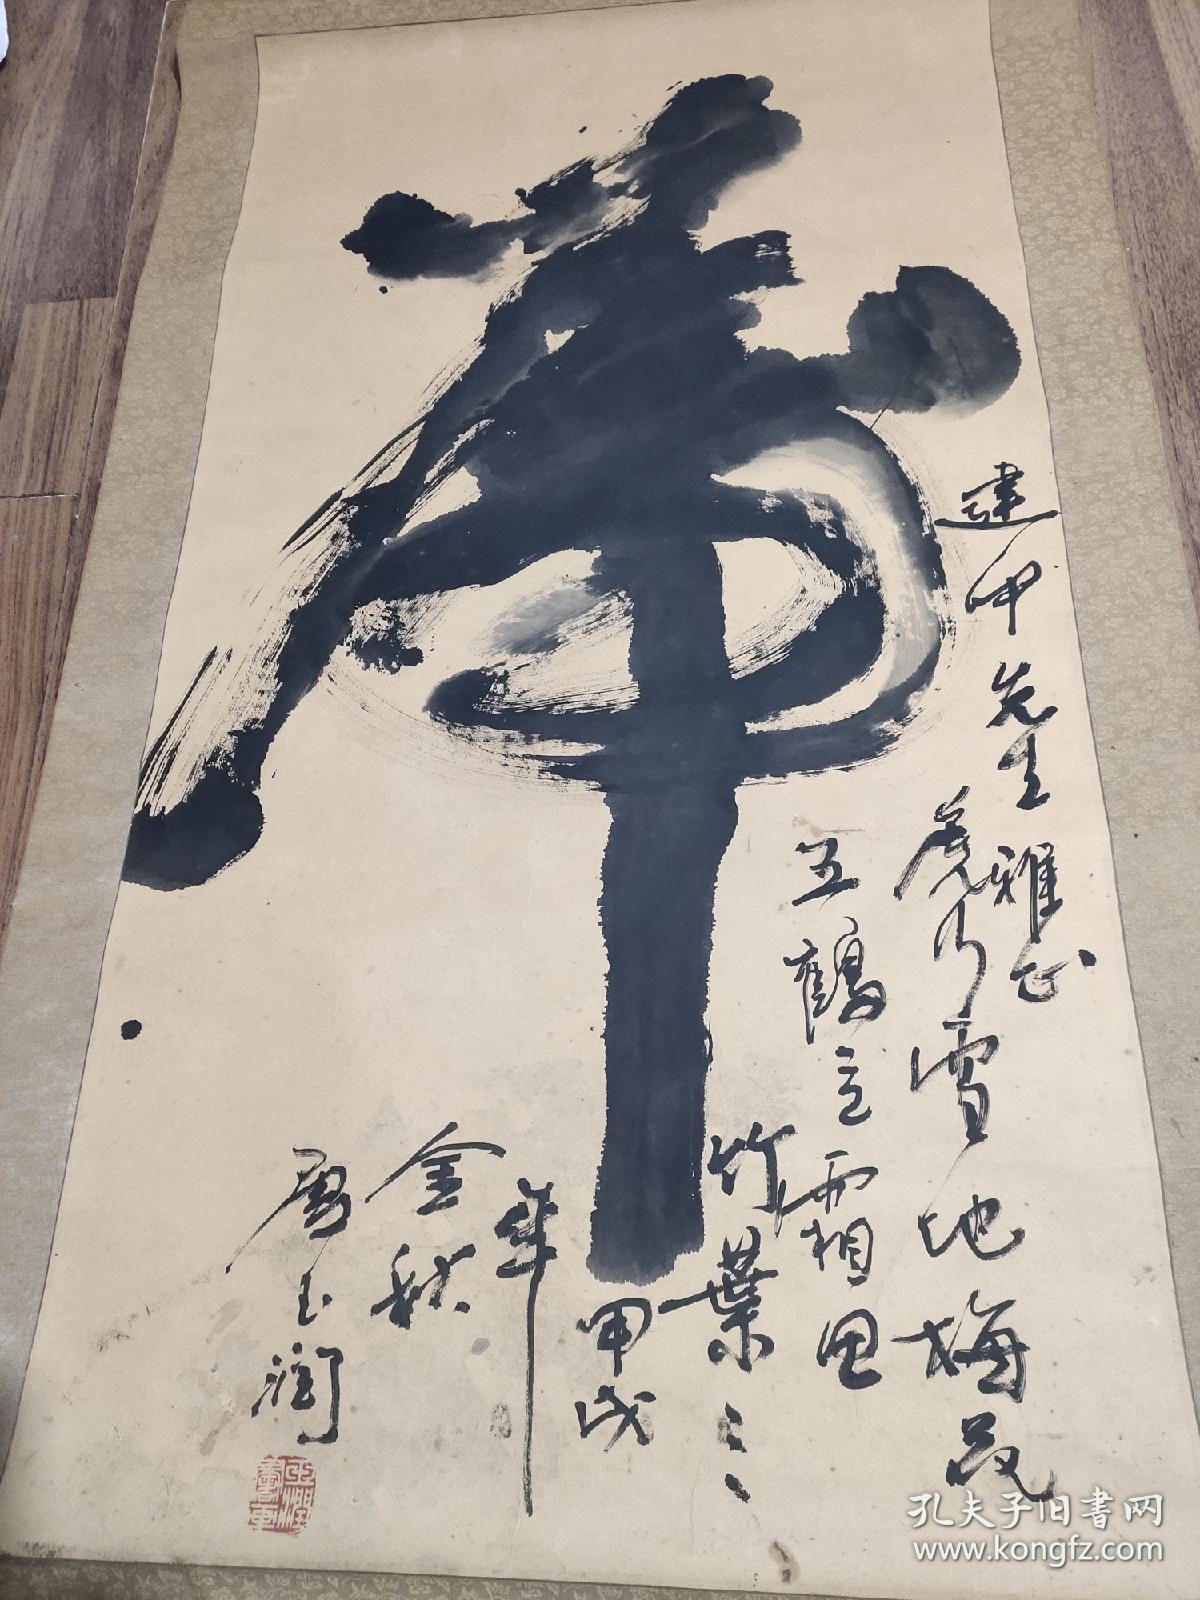 虎
建中先生雅正
虎行雪地梅花
五鹤立霜田
竹葉三
甲戌
年
金秋
玉润
孔夫子旧书网
www.kongfz.com